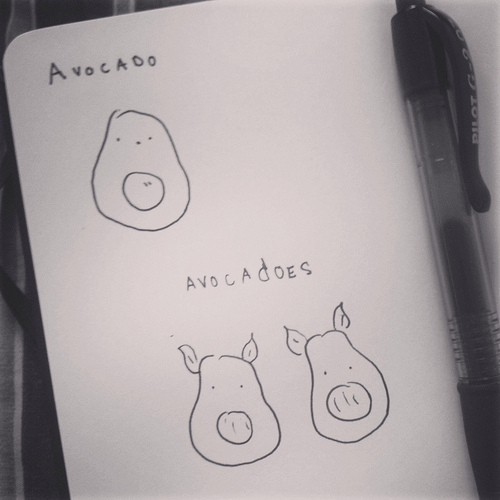 AVOCADO
AVOCADOES
PILOT G-2